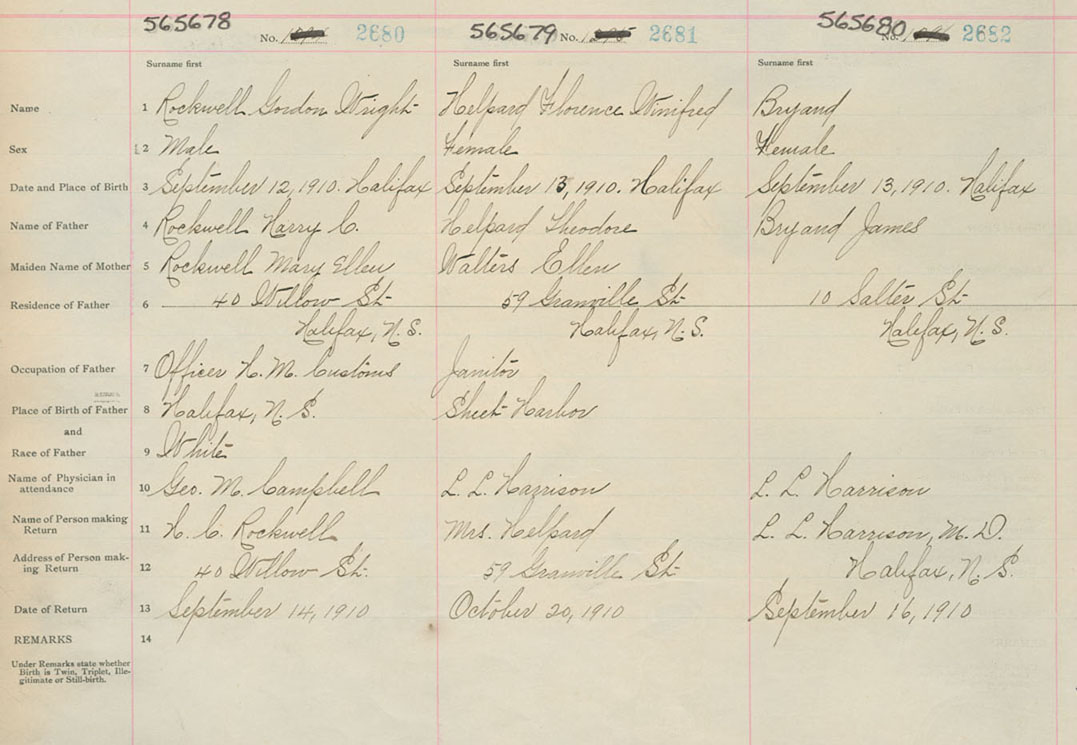 565678 565679 565680
No. 2680 No. 2681 No. 2682
Surname first Surname first Surname first
Name 1 Rockwell Gordon Wright Helpard Florence Winifred Bryand
Sex 2 Male Female Female
Date and Place of Birth 3 September 12, 1910. Halifax September 13, 1910. Halifax September 13, 1910. Halifax
Name of Father 4 Rockwell Harry C. Helpard Theodore Bryand James
Maiden Name of Mother 5 Rockwell Mary Ellen Walters Ellen
Residence of Father 6 40 Willow St 59 Granville St 10 Salter St
Halifax, N.S. Halifax, N.S. Halifax, N.S.
Occupation of Father 7 Officer H. M. Customs Janitor
Place of Birth of Father 8 Halifax, N. S. Sheet Harbor
and
Race of Father 9 White
Name of Physician in
attendance 10 Geo. M. Campbell L. L. Harrison L. L. Harrison
Name of Person making
Return 11 H. C. Rockwell Mrs. Helpard L. L. Harrison, M. D.
Address of Person mak-
ing Return 12 40 Willow St. 59 Granville St Halifax, N. S.
Date of Return 13 September 14, 1910 October 20, 1910 September 16, 1910
REMARKS 14
Under Remarks state whether
Birth is Twin, Triplet, Ille-
gitimate or Still-birth.